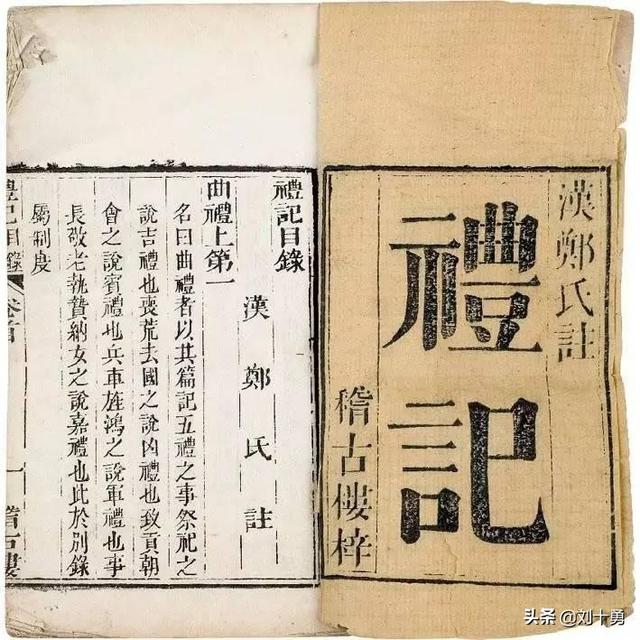 漢鄭氏註
禮記
稽古樓梓
禮記目錄
漢鄭氏註
曲禮上第一
名曰曲禮者以其篇記五禮之事祭祀之
說吉禮也喪荒去國之說凶禮也致貢朝
會之說賓禮也兵車旌鴻之說軍禮也事
長敬老執贄納女之說嘉禮也此於別錄
屬制度
禮記目錄
卷首
一
稽古樓
头条 @刘十勇